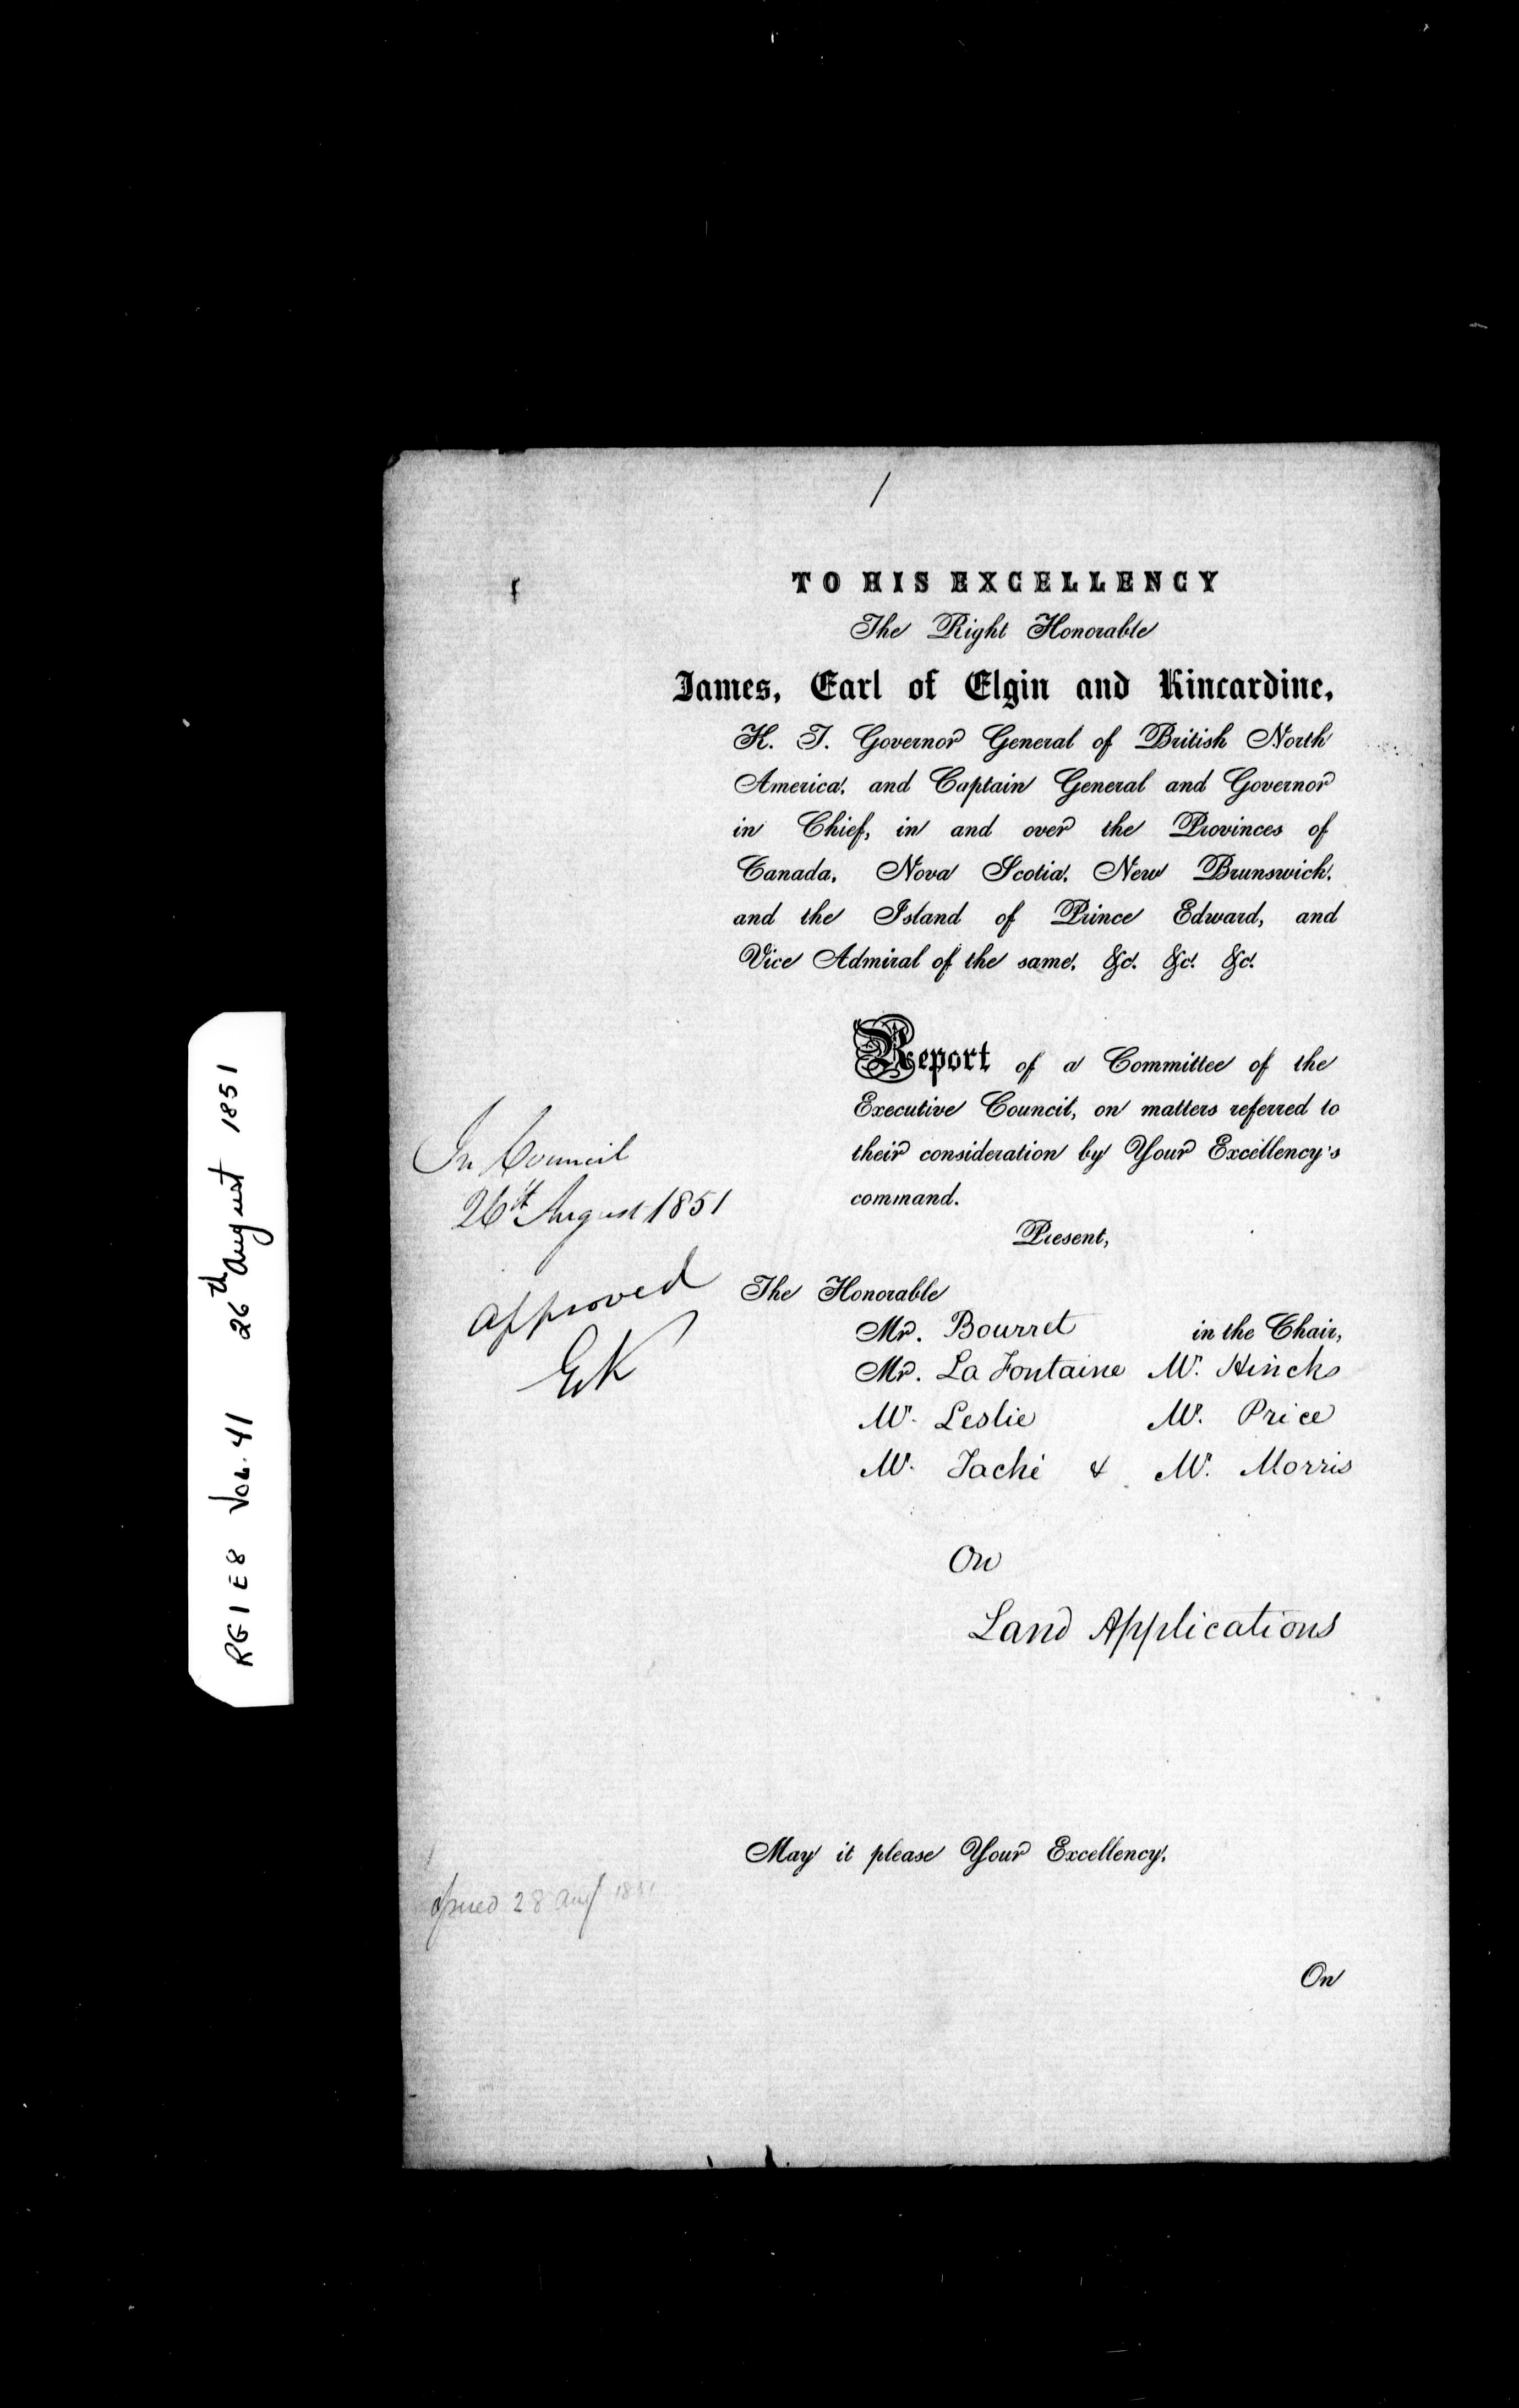 RG1 E8 Vol. 41 26th August 1851
1
TO HIS EXCELLENCY
The Right Honorable
James, Earl of Elgin and Kincardine,
K. T. Governor General of British North
America, and Captain General and Governor
in Chief, in and over the Provinces of
Canada, Nova Scotia, New Brunswick,
and the Island of Prince Edward, and
Vice Admiral of the same, &c. &c. &c.
Report of a Committee of the
Executive Council, on matters referred to
their consideration by Your Excellency's
command.
In Council
26th August 1851
approved
E&K
Present,
The Honorable
Mr. Bourret in the Chair,
Mr. La Fontaine Mr. Hincks
Mr. Leslie Mr. Price
Mr. Taché & Mr. Morris
On
Land Applications
May it please Your Excellency,
Issued 28 Aug 1851
On